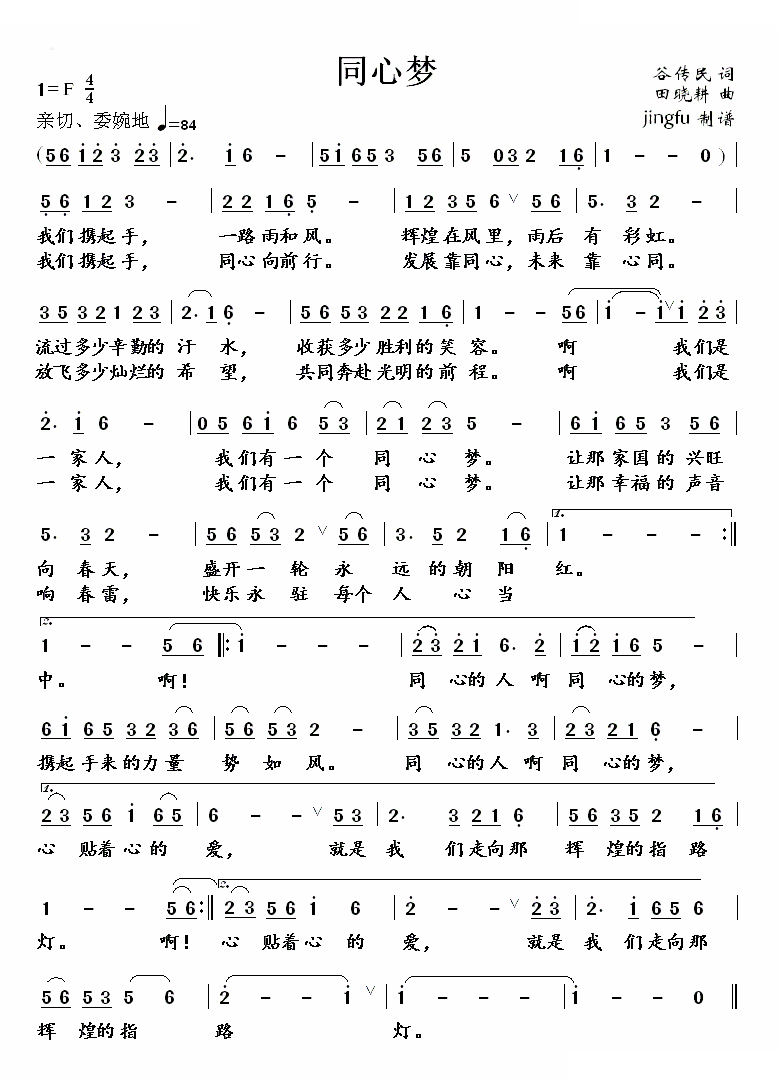 同心梦
1=F 4/4
谷传民 词
田晓耕 曲
亲切、委婉地 ♩=84
jingfu 制谱
(56 123 23 | 2· 16 - | 51653 56 | 5 032 12 16 | 1 - - 0 ) |
56 12 3 - | 22 16 5 - | 12 35 6 ∨ 56 | 5· 3 2 - |
我们携起手， 一路雨和风。 辉煌在风里，雨后 有 彩虹。
我们携起手， 同心向前行。 发展靠同心，未来 靠 心同。
35 32 12 3 | 2·16 - | 56 53 22 16 | 1 - - 56 | 1 - 1∨1 23 |
流过多少辛勤的 汗 水， 收获多少胜利的笑 容。 啊 我们是
放飞多少灿烂的 希 望， 共同奔赴光明的前 程。 啊 我们是
2· 1 6 - | 05 61 6 53 | 21 23 5 - | 61 65 3 56 |
一 家人， 我们有一个 同 心 梦。 让那家国的兴旺
一 家人， 我们有一个 同 心 梦。 让那幸福的声音
5· 3 2 - | 56 53 2 ∨ 56 | 3· 5 2 16 | 1 - - - :‖
1.
向 春天， 盛开一 轮 永 远 的朝 阳 红。
响 春雷， 快乐永 驻 每个 人 心 当
2.
1 - - 56 ‖: 1 - - - | 23 21 6· 2 | 12 16 5 - |
中。 啊！ 同 心的人 啊 同 心的梦，
61 65 32 36 | 56 53 2 - | 35 32 1· 3 | 23 21 6 - |
携起手来的力量 势 如 风。 同 心的人 啊 同 心的梦，
1.
23 56 1 65 | 6 - - ∨ 53 | 2· 3 21 6 | 56 35 2 16 |
心 贴着心的 爱， 就是 我 们走向那 辉 煌的指 路
1 - - 56 :‖ 23 56 1 6 | 2 - - ∨ 23 | 2· 1 65 6 |
2.
灯。 啊！ 心 贴着心 的 爱， 就是 我 们走向那
56 53 5 6 | 2 - - 1 ∨ | 1 - - - | 1 - - 0 ‖
辉 煌的指 路 灯。